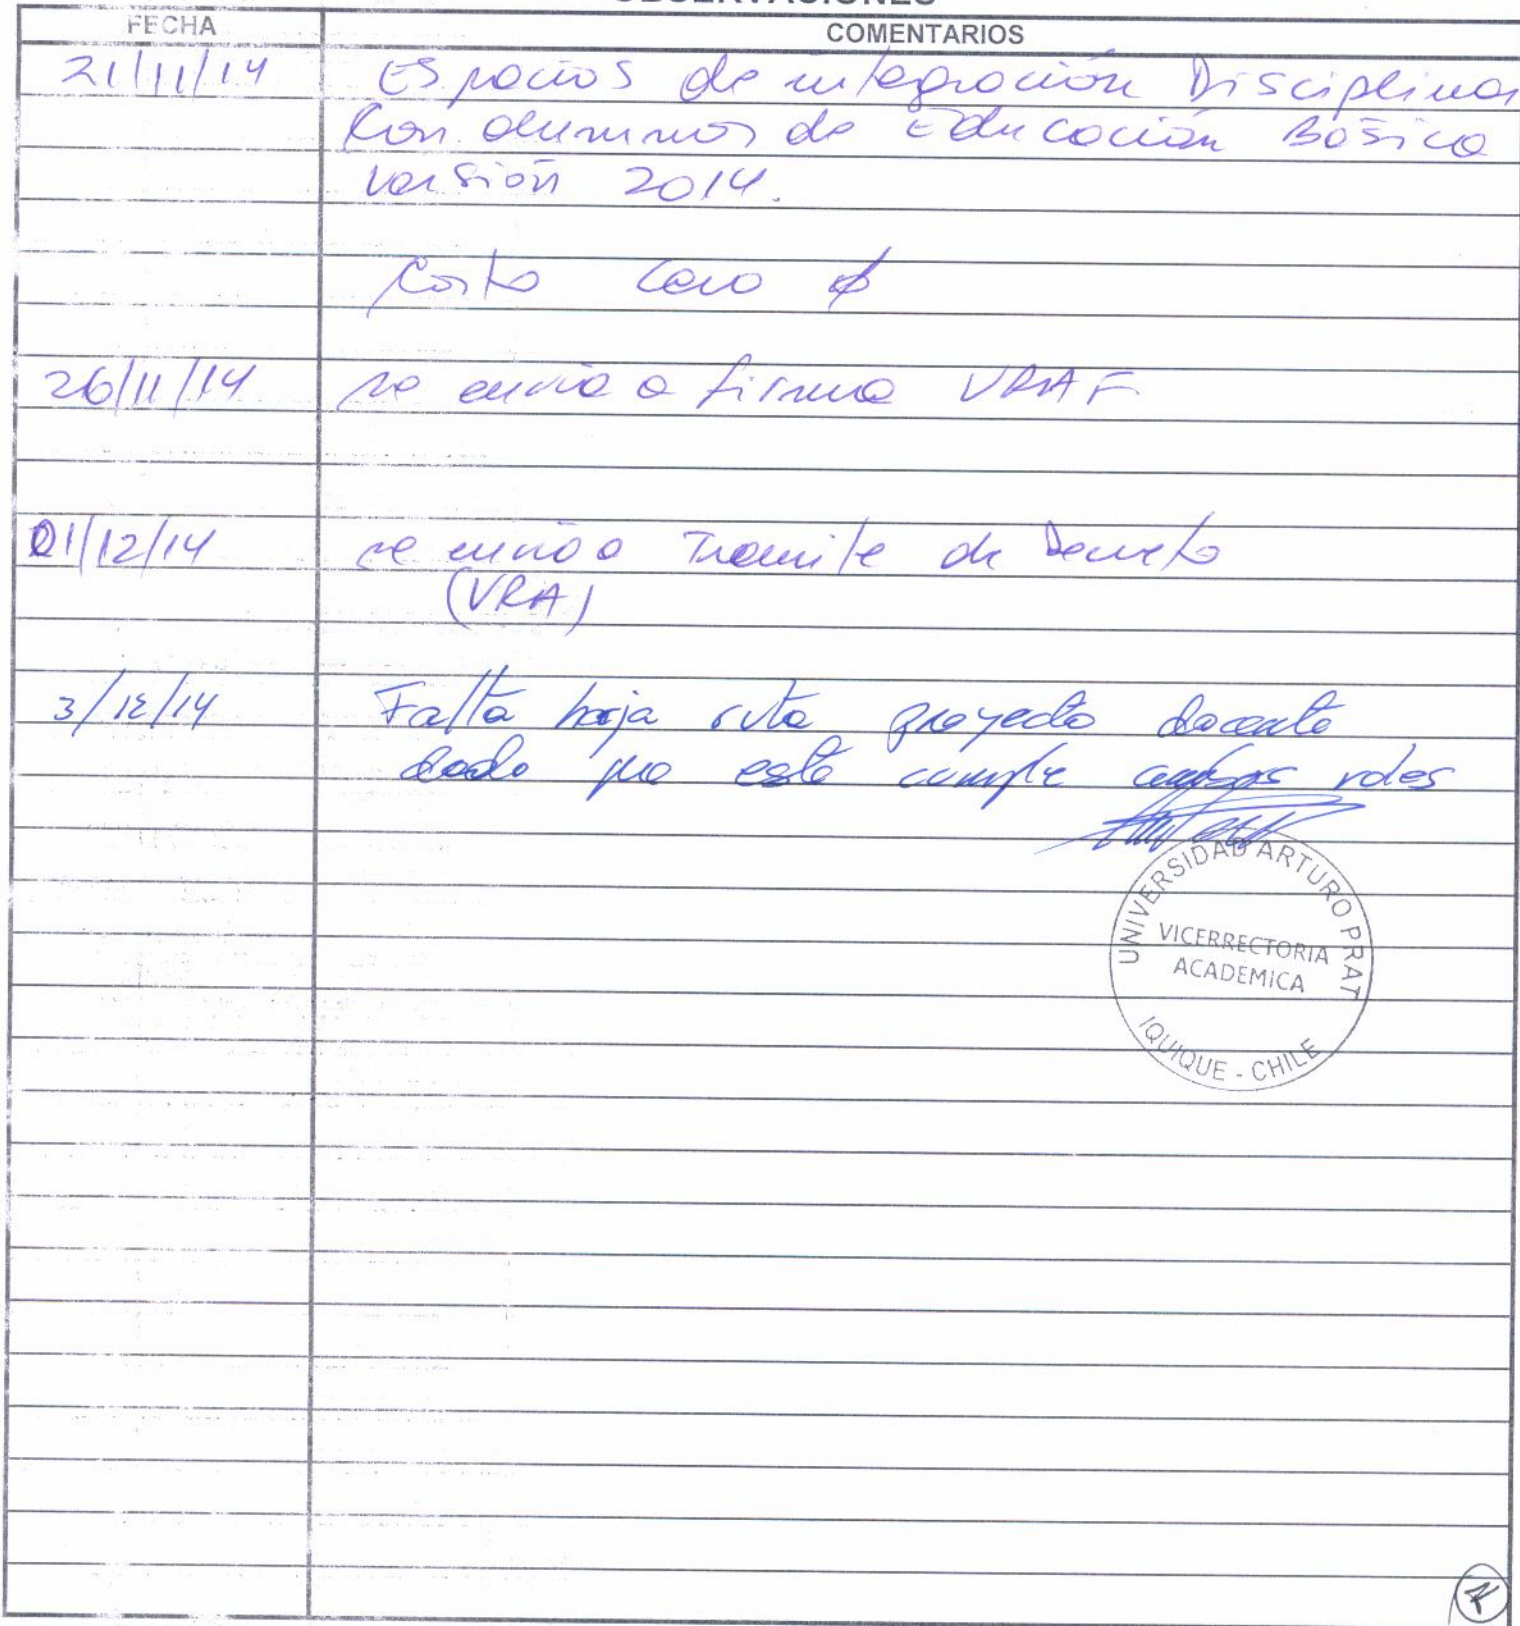 OBSERVACIONES
FECHA COMENTARIOS
21/11/14 Espacios de integración Disciplinar
Con alumnos de Educación Básica
Versión 2014.
Costo Cero
26/11/14 se envia a firma VRAF
01/12/14 se envio a Tramite de Decreto
(VRA)
3/12/14 Falta hoja ruta proyecto docente
dado que este cumple ambos roles
UNIVERSIDAD ARTURO PRAT
VICERRECTORIA
ACADEMICA
IQUIQUE - CHILE